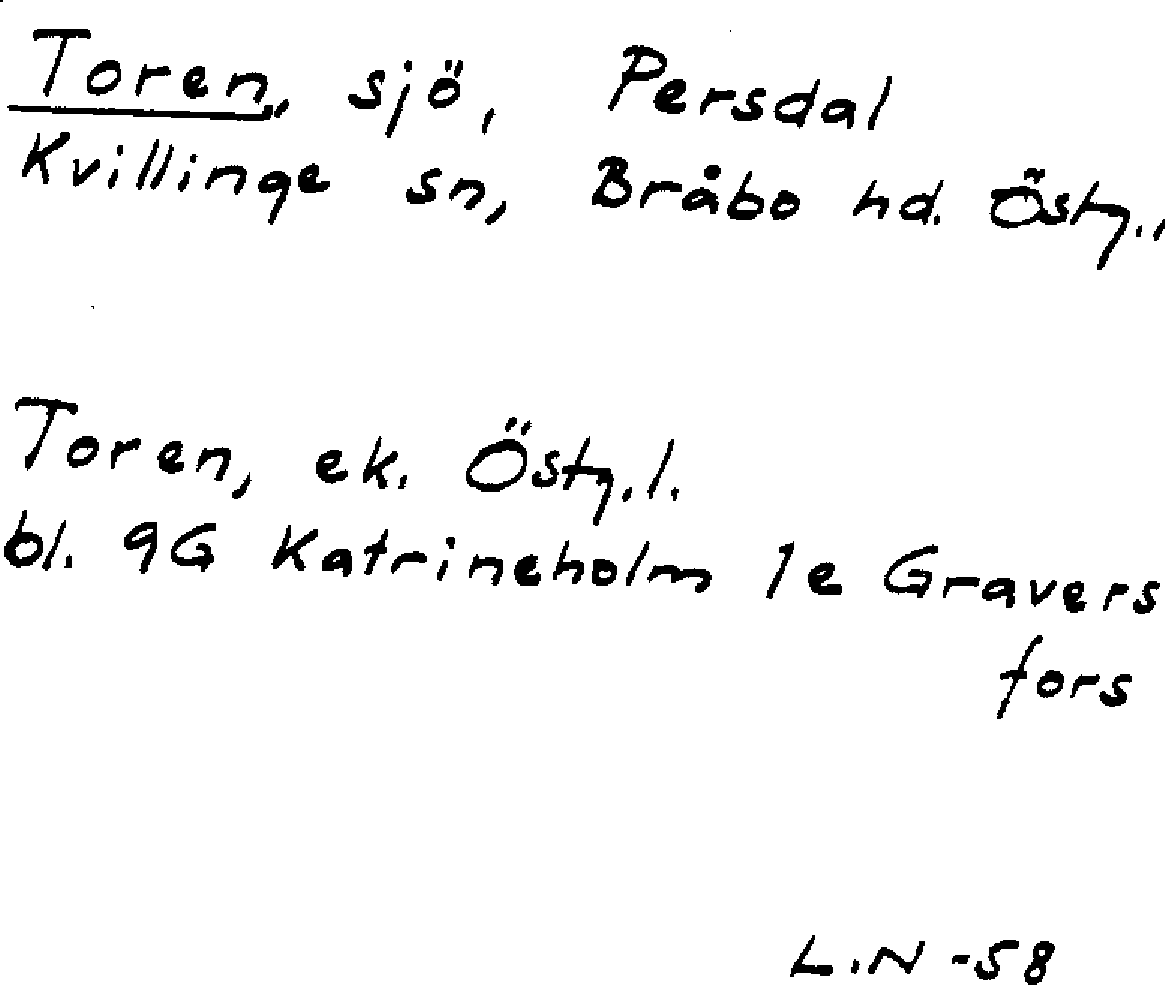 Toren, sjö, Persdal
Kvillinge sn, Bråbo hd. Östg.,
Toren, ek. Östg.l.
bl. 9G Katrineholm 1e Gravers
fors
L.N -58